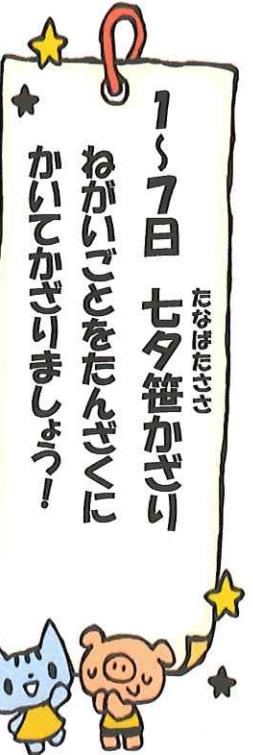 1～7日 七夕笹かざり
たなばたささ
ねがいごとをたんざくに
かいてかざりましょう!